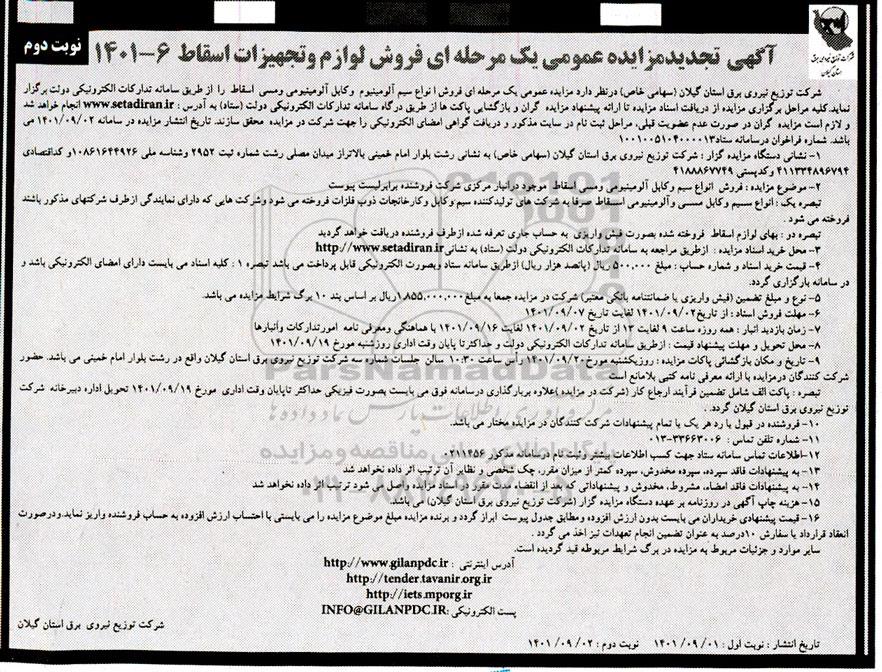 نوبت دوم
آگهی تجدیدمزایده عمومی یک مرحله ای فروش لوازم وتجهیزات اسقاط ۶-۱۴۰۱
شرکت توزیع نیروی برق استان گیلان
شرکت توزیع نیروی برق استان گیلان (سهامی خاص) درنظر دارد مزایده عمومی یک مرحله ای فروش انواع سیم آلومینیوم وکابل آلومینیومی ومسی اسقاط را از طریق سامانه تدارکات الکترونیکی دولت برگزار
نماید.کلیه مراحل برگزاری مزایده از دریافت اسناد مزایده تا ارائه پیشنهاد مزایده گران و بازگشایی پاکت ها از طریق درگاه سامانه تدارکات الکترونیکی دولت (ستاد) به آدرس : www.setadiran.ir انجام خواهد شد
و لازم است مزایده گران در صورت عدم عضویت قبلی، مراحل ثبت نام در سایت مذکور و دریافت گواهی امضای الکترونیکی را جهت شرکت در مزایده محقق سازند. تاریخ انتشار مزایده در سامانه ۱۴۰۱/۰۹/۰۲ می
باشد. شماره فراخوان درسامانه ستاد۱۰۰۱۰۰۵۱۰۴۰۰۰۰۱۳
۱- نشانی دستگاه مزایده گزار : شرکت توزیع نیروی برق استان گیلان (سهامی خاص) به نشانی رشت بلوار امام خمینی بالاتراز میدان مصلی رشت شماره ثبت ۲۹۵۲ وشناسه ملی ۱۰۸۶۱۶۴۴۹۲۶و کداقتصادی
۴۱۱۳۳۴۸۹۶۷۹۴ وکدپستی ۴۱۸۸۸۶۷۷۴۹
۲- موضوع مزایده : فروش انواع سیم وکابل آلومینیومی ومسی اسقاط موجود درانبار مرکزی شرکت فروشنده برابرلیست پیوست
تبصره یک : انواع سیم وکابل مسی وآلومینیومی اسقاط صرفا به شرکت های تولیدکننده سیم وکابل وکارخانجات ذوب فلزات فروخته می شود وشرکت هایی که دارای نمایندگی ازطرف شرکتهای مذکور باشند
فروخته می شود .
تبصره دو : بهای لوازم اسقاط فروخته شده بصورت فیش واریزی به حساب جاری تعرفه شده ازطرف فروشنده دریافت خواهد گردید
۳- محل خرید اسناد مزایده : ازطریق مراجعه به سامانه تدارکات الکترونیکی دولت (ستاد) به نشانی http://www.setadiran.ir
۴- قیمت خرید اسناد و شماره حساب : مبلغ ۵۰۰,۰۰۰ ریال (پانصد هزار ریال) ازطریق سامانه ستاد وبصورت الکترونیکی قابل پرداخت می باشد تبصره ۱ : کلیه اسناد می بایست دارای امضای الکترونیکی باشد و
در سامانه بارگزاری گردد.
۵- نوع و مبلغ تضمین (فیش واریزی یا ضمانتنامه بانکی معتبر) شرکت در مزایده جمعا به مبلغ ۱,۸۵۵,۰۰۰,۰۰۰ریال بر اساس بند ۱۰ برگ شرایط مزایده می باشد.
۶- مهلت فروش اسناد : از تاریخ۱۴۰۱/۰۹/۰۲ لغایت تاریخ ۱۴۰۱/۰۹/۰۷
۷- زمان بازدید انبار : همه روزه ساعت ۹ لغایت ۱۳ از تاریخ ۱۴۰۱/۰۹/۰۲ لغایت ۱۴۰۱/۰۹/۱۶ با هماهنگی ومعرفی نامه امورتدارکات وانبارها
۸- محل تحویل و مهلت پیشنهاد قیمت : ازطریق سامانه تدارکات الکترونیکی دولت و حداکثرتا پایان وقت اداری روزشنبه مورخ ۱۴۰۱/۰۹/۱۹
۹- تاریخ و مکان بازگشائی پاکات مزایده : روزیکشنبه مورخ۱۴۰۱/۰۹/۲۰ رأس ساعت ۱۰:۳۰ سالن جلسات شماره سه شرکت توزیع نیروی برق استان گیلان واقع در رشت بلوار امام خمینی می باشد. حضور
شرکت کنندگان درمزایده با ارائه معرفی نامه کتبی بلامانع است
تبصره : پاکت الف شامل تضمین فرآیند ارجاع کار (شرکت در مزایده )علاوه بربارگذاری درسامانه فوق می بایست بصورت فیزیکی حداکثر تاپایان وقت اداری مورخ ۱۴۰۱/۰۹/۱۹ تحویل اداره دبیرخانه شرکت
توزیع نیروی برق استان گیلان گردد. .
۱۰- فروشنده در قبول یا رد هر یک یا تمام پیشنهادات شرکت کنندگان در مزایده مختار می باشد.
۱۱- شماره تلفن تماس : ۳۳۶۶۳۰۰۶-۰۱۳
۱۲-اطلاعات تماس سامانه ستاد جهت کسب اطلاعات بیشتر وثبت نام درسامانه مذکور ۰۲۱۱۴۵۶
۱۳- به پیشنهادات فاقد سپرده، سپرده مخدوش، سپرده کمتر از میزان مقرر، چک شخصی و نظایر آن ترتیب اثر داده نخواهد شد
۱۴- به پیشنهادات فاقد امضاء، مشروط، مخدوش و پیشنهاداتی که بعد از انقضاء مدت مقرر در اسناد مزایده واصل می شود ترتیب اثر داده نخواهد شد
۱۵- هزینه چاپ آگهی در روزنامه بر عهده دستگاه مزایده گزار (شرکت توزیع نیروی برق استان گیلان) می باشد.
۱۶- قیمت پیشنهادی خریداران می بایست بدون ارزش افزوده ومطابق جدول پیوست ابراز گردد و برنده مزایده مبلغ موضوع مزایده را می بایستی با احتساب ارزش افزوده به حساب فروشنده واریز نماید.ودرصورت
انعقاد قرارداد یا سفارش ۱۰درصد به عنوان تضمین انجام تعهدات نیز اخذ می گردد .
سایر موارد و جزئیات مربوط به مزایده در برگ شرایط مربوطه قید گردیده است.
آدرس اینترنتی : http://www.gilanpdc.ir
http://tender.tavanir.org.ir
http://iets.mporg.ir
پست الکترونیکی :INFO@GILANPDC.IR
شرکت توزیع نیروی برق استان گیلان
تاریخ انتشار : نوبت اول : ۱۴۰۱/۰۹/۰۱ نوبت دوم : ۱۴۰۱/۰۹/۰۲
ParsNamadData